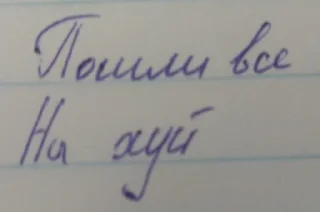 Пошли все
На хуй